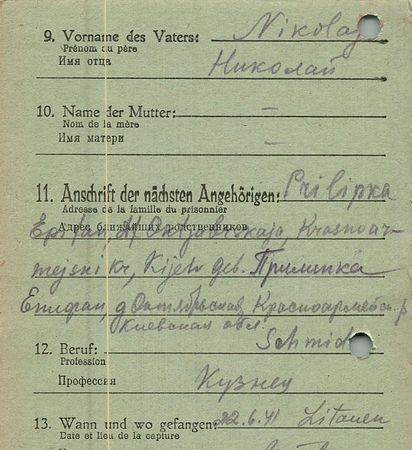 9. Vorname des Vaters: Nikolaj
Prénom du père
Имя отца Николай
10. Name der Mutter: —
Nom de la mère
Имя матери —
11. Anschrift der nächsten Angehörigen: Prilipka
Adresse de la famille du prisonnier
Адрес ближайших родственников
Epifan, Oktjabrskaja, Krasnoar-
mejski kr, Kijew geb. Прилипка
Епифан, д Октябрьская, Красноармейск. р
Киевская обл.
12. Beruf: Schmid
Profession
Профессия Кузнец
13. Wann und wo gefangen: 22.6.41 Litauen
Date et lieu de la capture